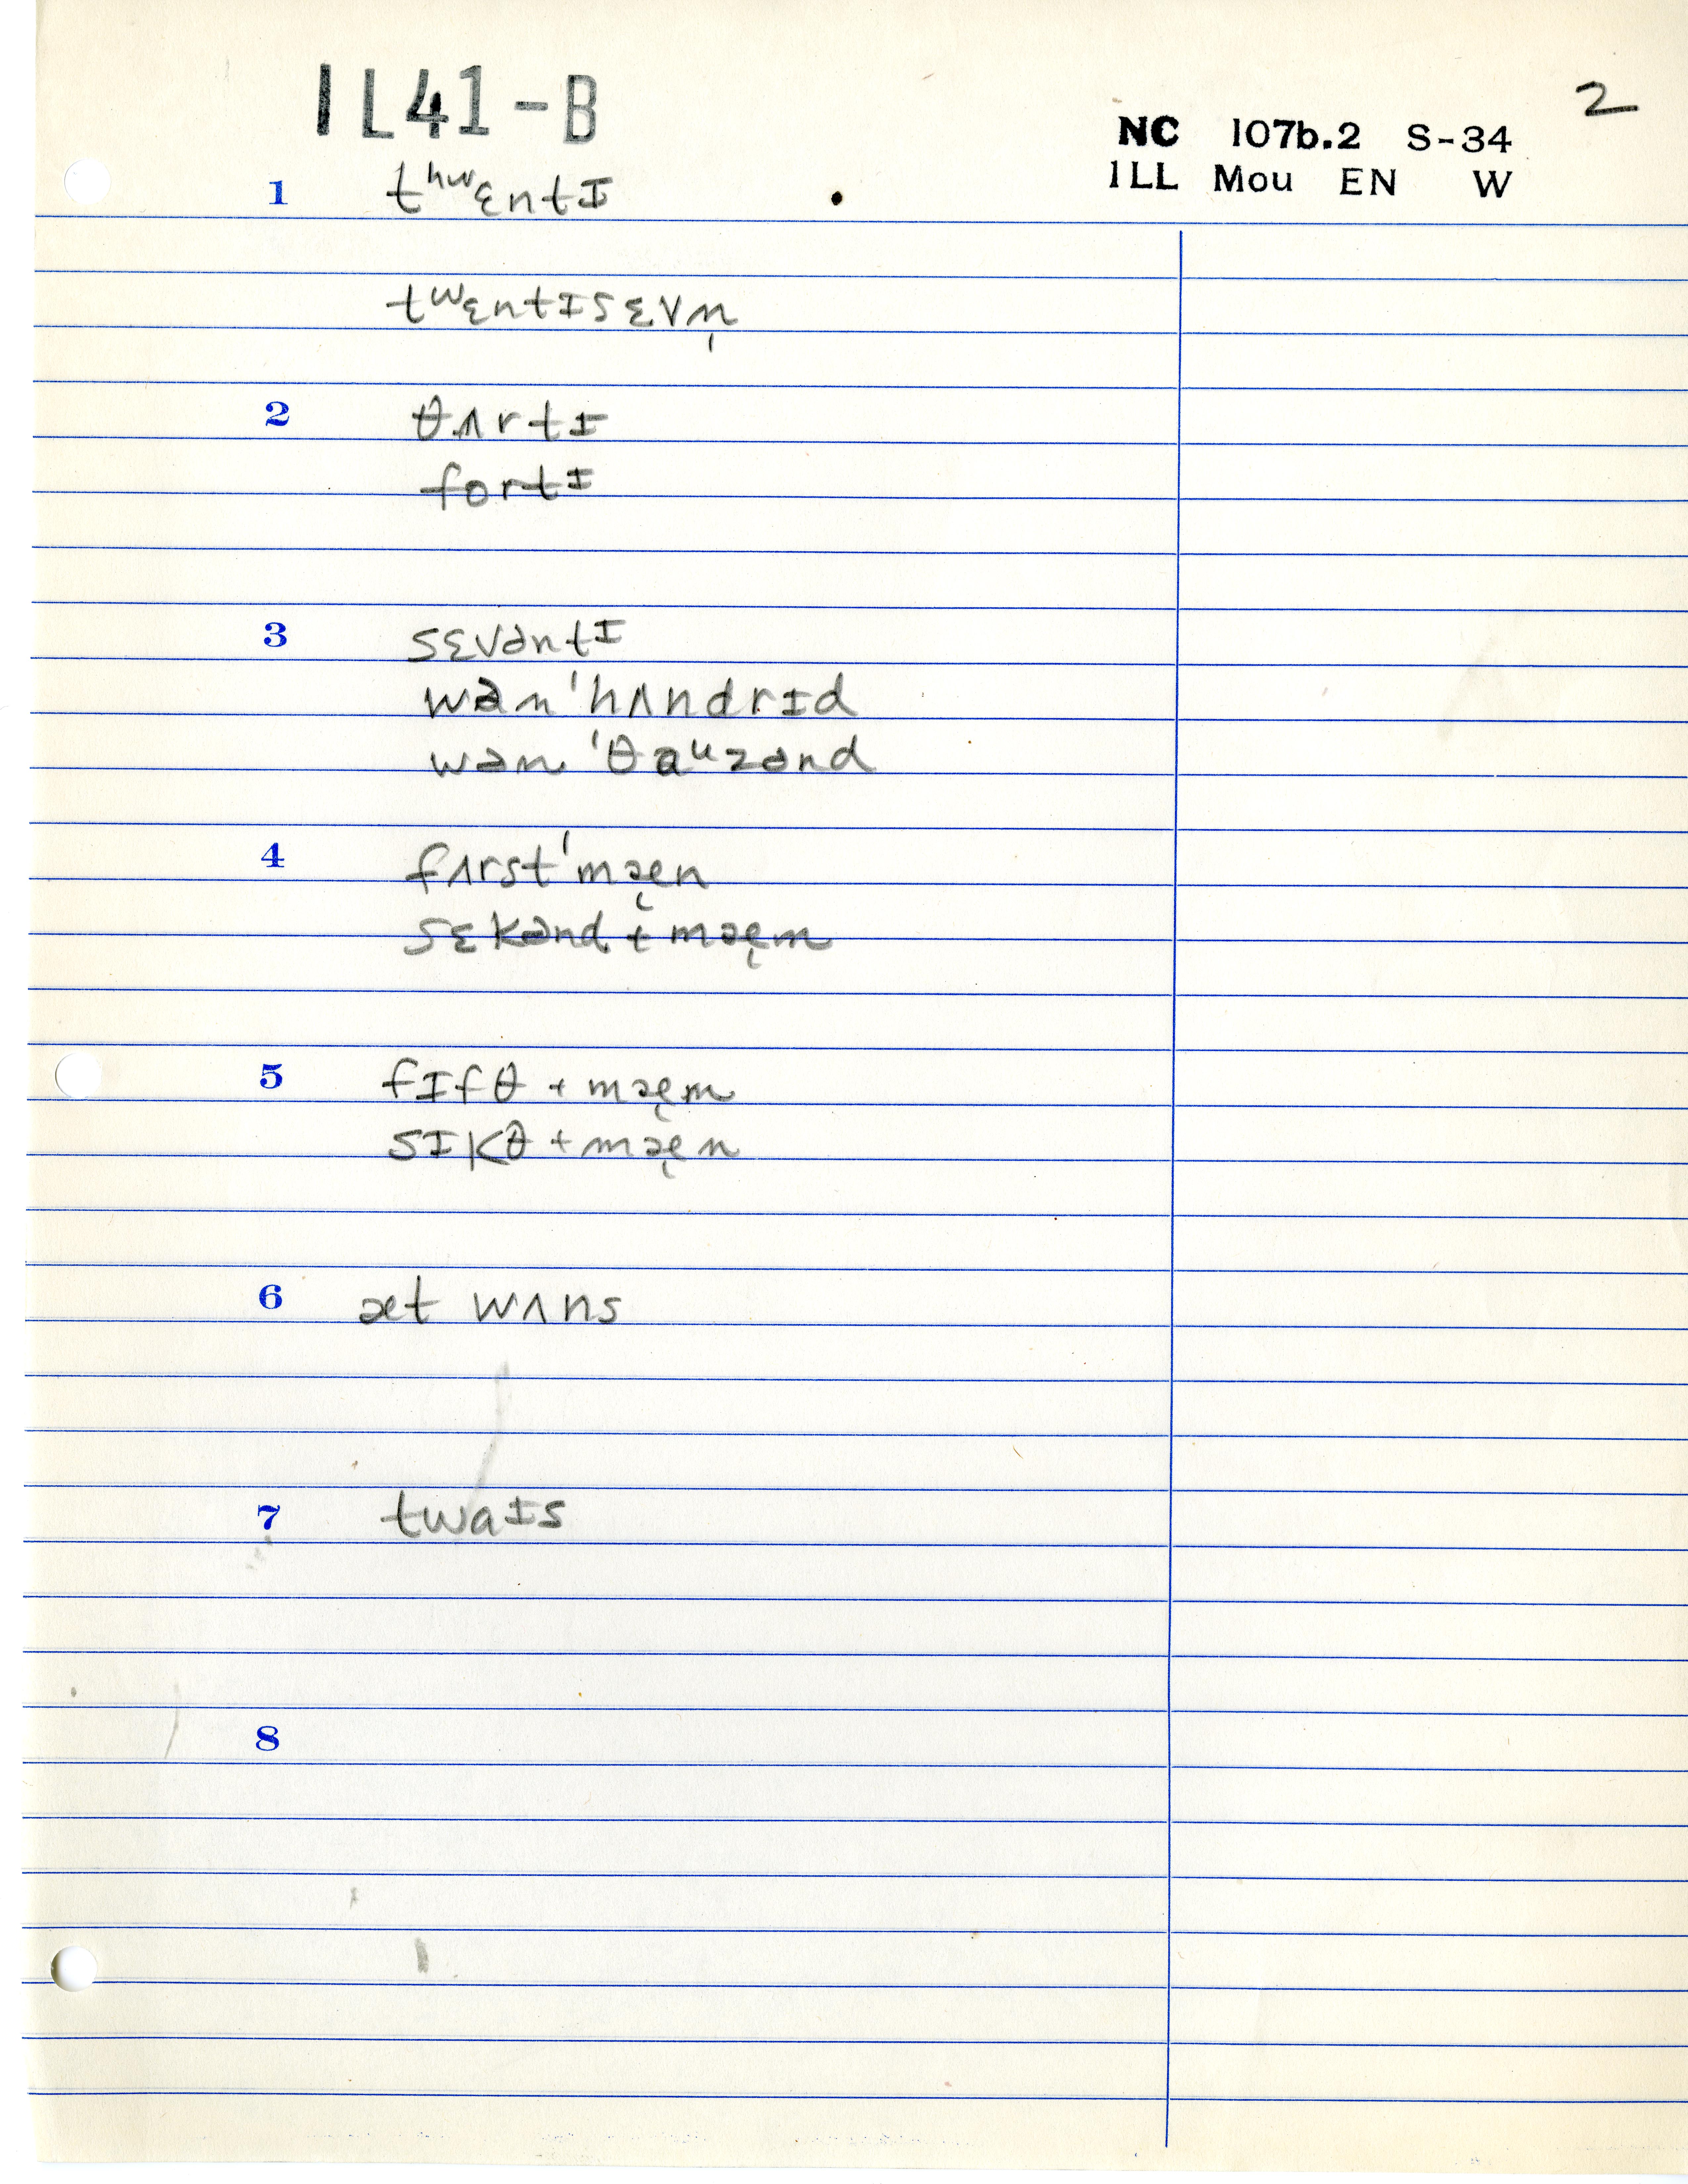 IL41-B
2
NC 107b.2 S-34
ILL Mou EN W
1 tʰʷɛntɪ
tʷɛntɪsɛvn̩
2 θʌrtɪ
fortɪ
3 sɛvəntɪ
wən 'hʌndrɪd
wən 'θaᵘzənd
4 fʌrst 'mæ̨n
sɛkənd + mæ̨n
5 fɪfθ + mæ̨n
sɪkθ + mæ̨n
6 æt wʌns
7 twaɪs
8